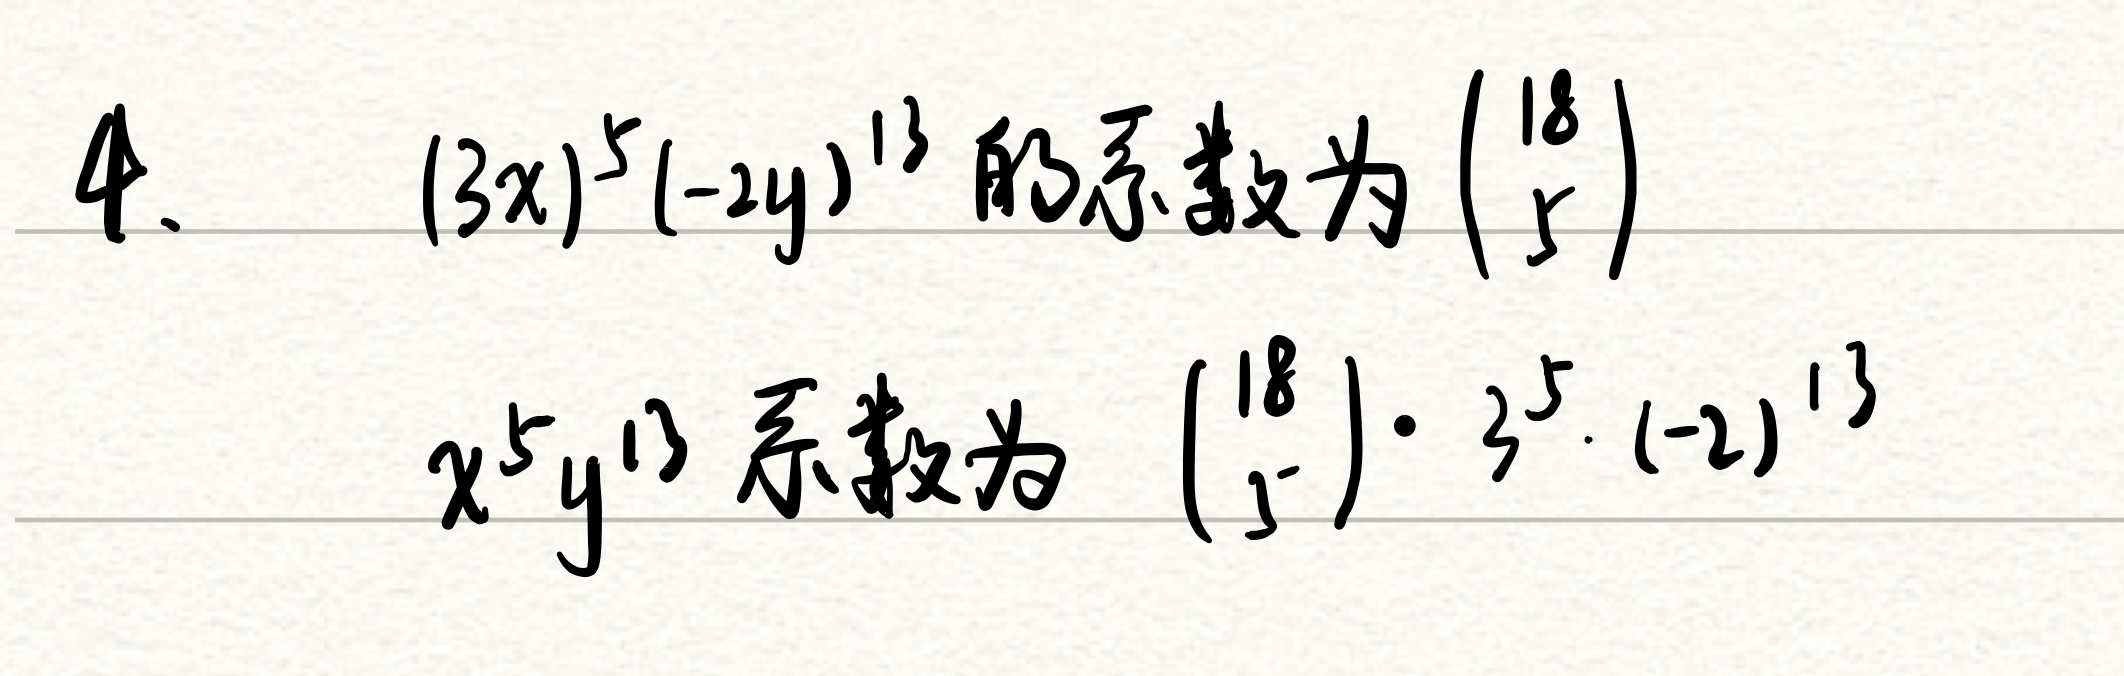 4、 (3x)^5 (-2y)^13 的系数为 (18 5)
x^5 y^13 系数为 (18 5) · 3^5 · (-2)^13